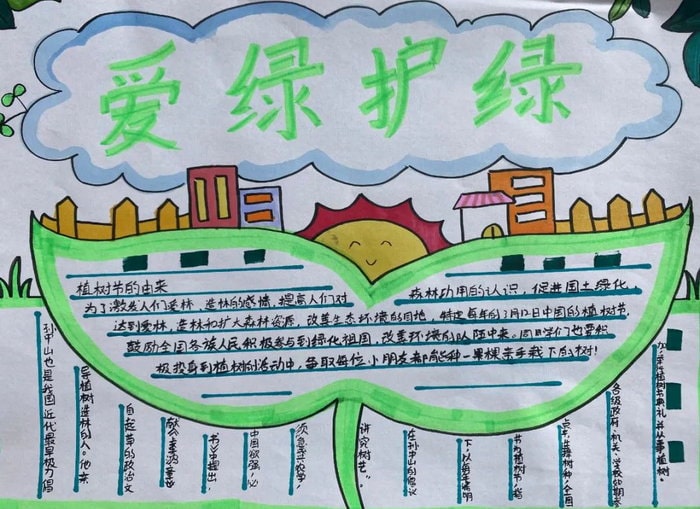 爱绿护绿
植树节的由来
为了激发人们爱林、造林的感情,提高人们对
森林功用的认识,促进国土绿化,
达到爱林、造林和扩大森林资源、改善生态环境的目地,特定每年的3月12日中国的植树节,
鼓励全国各族人民积极参与到绿化祖国,改善环境的队防中来。同时学们也要积
极投身到植树的活动中,争取每位小朋友都能种一果棵亲手栽下的树!
孙中山也是我国近代最早极力倡
导植树造林的人。他亲
自起草的政治文
献《上李鸿章
书》中提出,
中国欲强,必
须急兴农学,
讲究树艺”。
在孙中山的倡议
下,以每年清明
节为植树节,指
点
各级政府,机关、学校如期参
加,举行植树节典礼并从事植树。